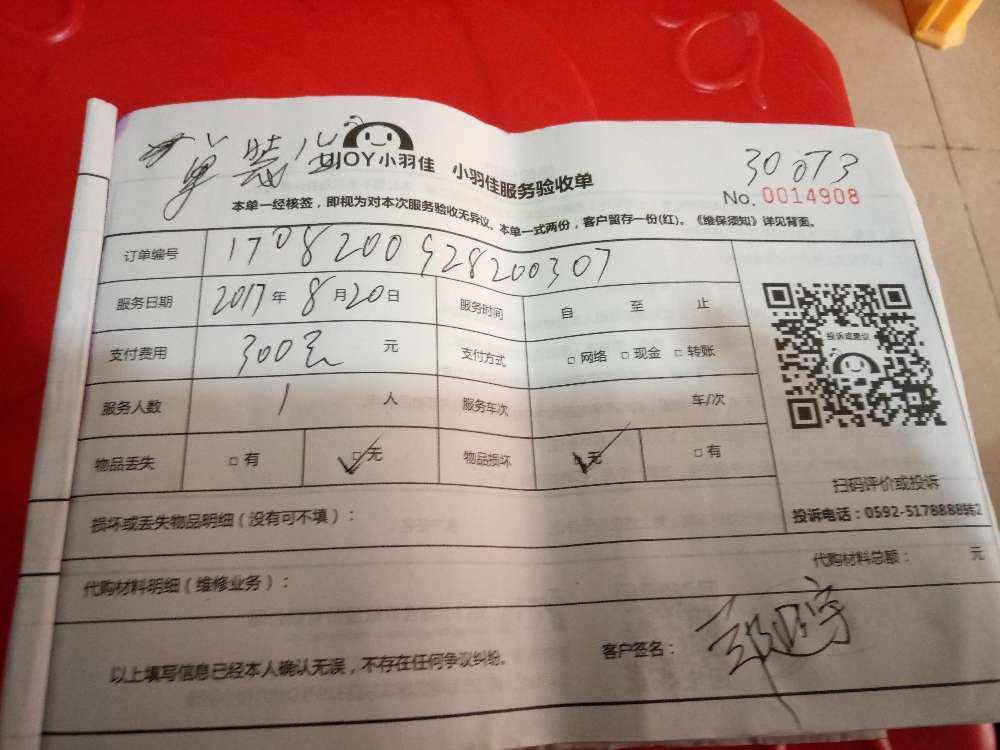 30073
IJOY小羽佳 小羽佳服务验收单
No. 0014908
本单一经核签，即视为对本次服务验收无异议。本单一式两份，客户留存一份(红)。《维保须知》详见背面。
订单编号 1708200928200307
服务日期 2017年8月20日 服务时间 自 至 止
支付费用 300元 元 支付方式 □网络 □现金 □转账
服务人数 1 人 服务车次 车/次
物品丢失 □有 ✓□无 物品损坏 ✓□无 □有
投诉或建议
扫码评价或投诉
投诉电话：0592-5178888转2
损坏或丢失物品明细（没有可不填）：
代购材料明细（维修业务）： 代购材料总额： 元
以上填写信息已经本人确认无误，不存在任何争议纠纷。 客户签名：